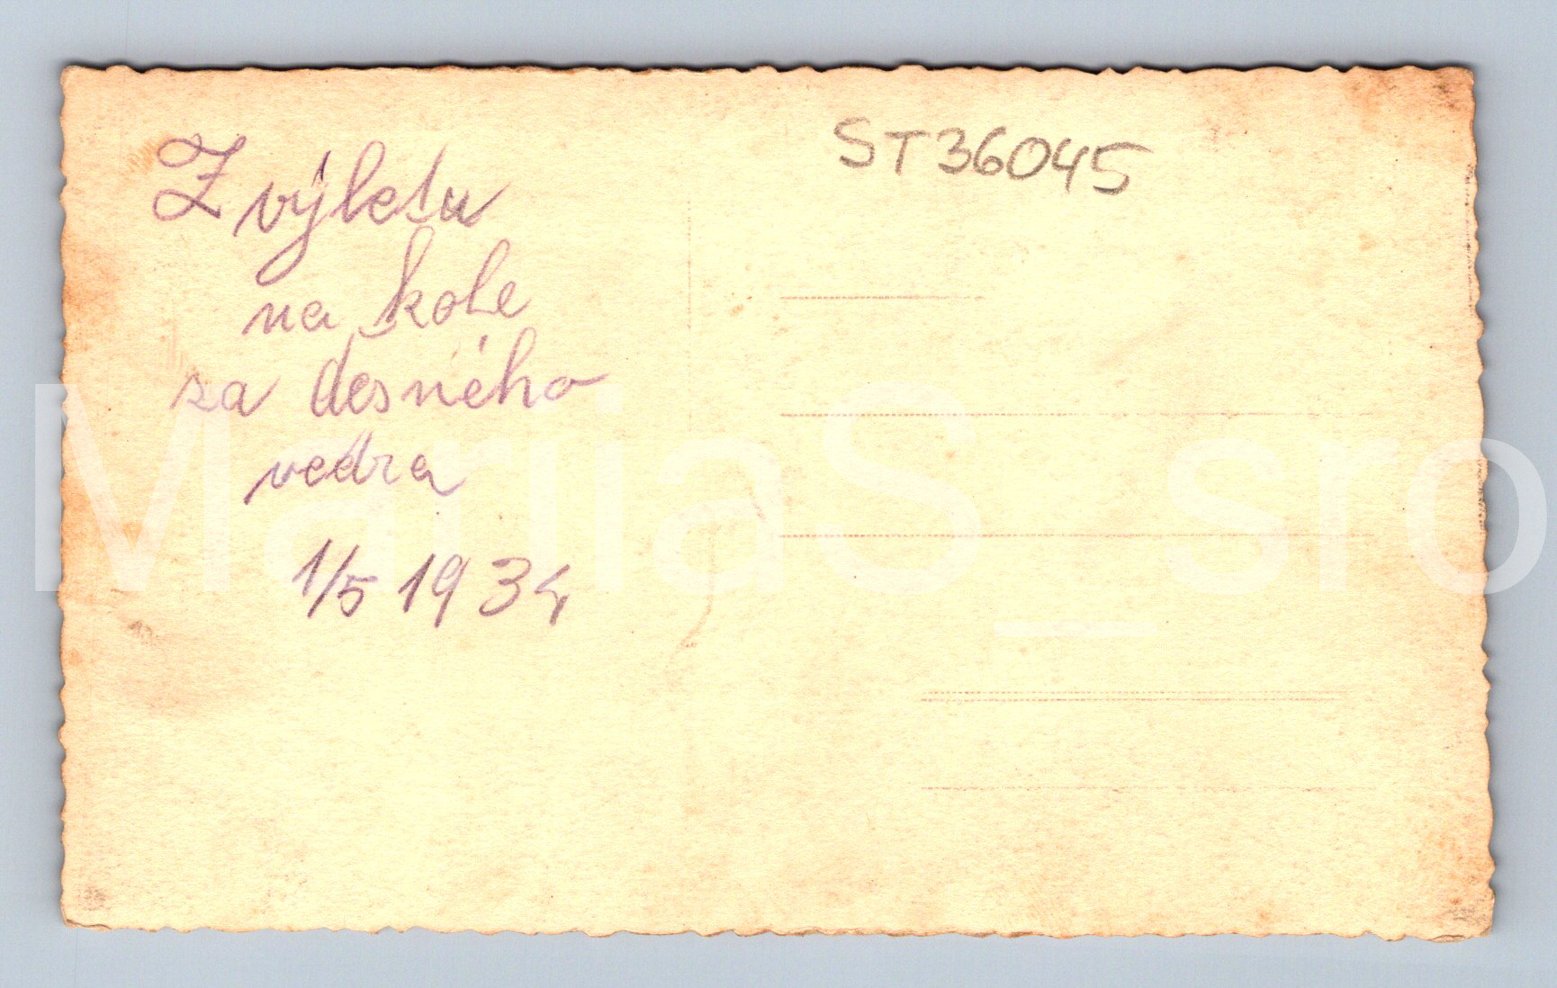 Z výletu
na kole
za desného
vedra
1/5 1934
ST36045
MarijaS_sro